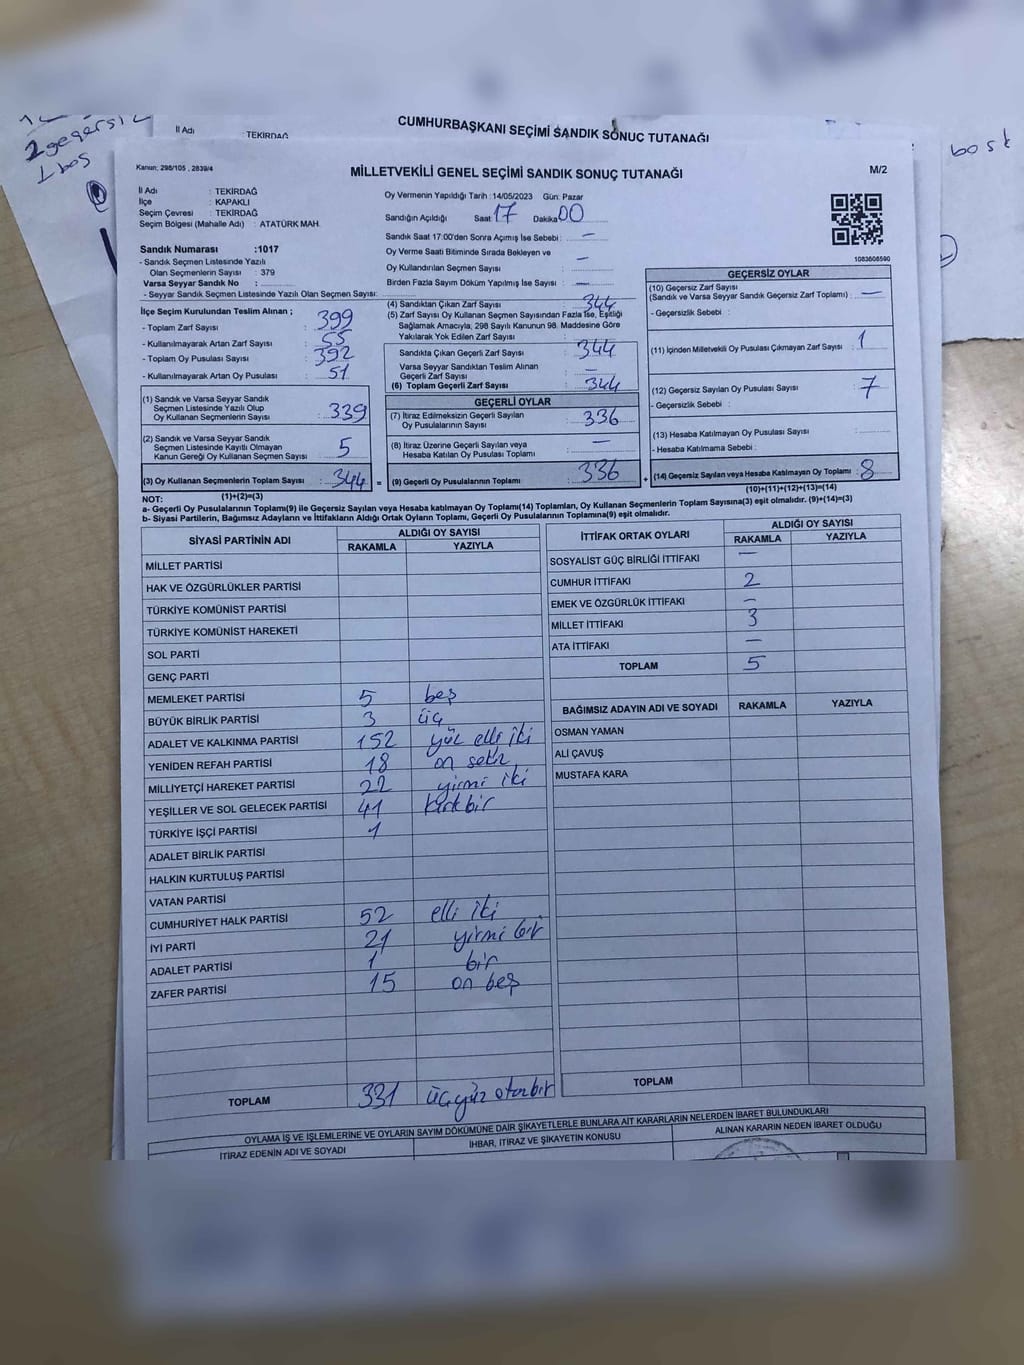 2 geçersiz
1 boş
boş k
İl Adı : TEKİRDAĞ
CUMHURBAŞKANI SEÇİMİ SANDIK SONUÇ TUTANAĞI
Kanun; 298/105 , 2839/4
MİLLETVEKİLİ GENEL SEÇİMİ SANDIK SONUÇ TUTANAĞI
M/2
İl Adı : TEKİRDAĞ
İlçe : KAPAKLI
Seçim Çevresi : TEKİRDAĞ
Seçim Bölgesi (Mahalle Adı) : ATATÜRK MAH.
Sandık Numarası :1017
- Sandık Seçmen Listesinde Yazılı
Olan Seçmenlerin Sayısı : 379
Varsa Seyyar Sandık No :
- Seyyar Sandık Seçmen Listesinde Yazılı Olan Seçmen Sayısı:
Oy Vermenin Yapıldığı Tarih : 14/05/2023 Gün: Pazar
Sandığın Açıldığı Saat 17 Dakika 00
Sandık Saat 17:00'den Sonra Açmış İse Sebebi : —
Oy Verme Saati Bitiminde Sırada Bekleyen ve
Oy Kullandırılan Seçmen Sayısı : —
Birden Fazla Sayım Döküm Yapılmış İse Sayısı : —
1083608590
İlçe Seçim Kurulundan Teslim Alınan ;
- Toplam Zarf Sayısı : 399
- Kullanılmayarak Artan Zarf Sayısı : 55
- Toplam Oy Pusulası Sayısı : 392
- Kullanılmayarak Artan Oy Pusulası : 51
(1) Sandık ve Varsa Seyyar Sandık
Seçmen Listesinde Yazılı Olup
Oy Kullanan Seçmenlerin Sayısı : 339
(2) Sandık ve Varsa Seyyar Sandık
Seçmen Listesinde Kayıtlı Olmayan
Kanun Gereği Oy Kullanan Seçmen Sayısı : 5
(3) Oy Kullanan Seçmenlerin Toplam Sayısı : 344 =
(1)+(2)=(3)
(4) Sandıktan Çıkan Zarf Sayısı : 344
(5) Zarf Sayısı Oy Kullanan Seçmen Sayısından Fazla İse, Eşitliği
Sağlamak Amacıyla, 298 Sayılı Kanunun 98. Maddesine Göre
Yakılarak Yok Edilen Zarf Sayısı :
Sandıkta Çıkan Geçerli Zarf Sayısı : 344
Varsa Seyyar Sandıktan Teslim Alınan
Geçerli Zarf Sayısı : —
(6) Toplam Geçerli Zarf Sayısı : 344
GEÇERLİ OYLAR
(7) İtiraz Edilmeksizin Geçerli Sayılan
Oy Pusulalarının Sayısı : 336
(8) İtiraz Üzerine Geçerli Sayılan veya
Hesaba Katılan Oy Pusulası Toplamı : —
(9) Geçerli Oy Pusulalarının Toplamı : 336 +
GEÇERSİZ OYLAR
(10) Geçersiz Zarf Sayısı
(Sandık ve Varsa Seyyar Sandık Geçersiz Zarf Toplamı) : —
- Geçersizlik Sebebi :
(11) İçinden Milletvekili Oy Pusulası Çıkmayan Zarf Sayısı : 1
(12) Geçersiz Sayılan Oy Pusulası Sayısı : 7
- Geçersizlik Sebebi :
(13) Hesaba Katılmayan Oy Pusulası Sayısı :
- Hesaba Katılmama Sebebi :
(14) Geçersiz Sayılan veya Hesaba Katılmayan Oy Toplamı : 8
(10)+(11)+(12)+(13)=(14)
NOT:
a- Geçerli Oy Pusulalarının Toplamı(9) ile Geçersiz Sayılan veya Hesaba katılmayan Oy Toplamı(14) Toplamları, Oy Kullanan Seçmenlerin Toplam Sayısına(3) eşit olmalıdır. (9)+(14)=(3)
b- Siyasi Partilerin, Bağımsız Adayların ve İttifakların Aldığı Ortak Oyların Toplamı, Geçerli Oy Pusulalarının Toplamına(9) eşit olmalıdır.
SİYASİ PARTİNİN ADI ALDIĞI OY SAYISI
RAKAMLA YAZIYLA
MİLLET PARTİSİ
HAK VE ÖZGÜRLÜKLER PARTİSİ
TÜRKİYE KOMÜNİST PARTİSİ
TÜRKİYE KOMÜNİST HAREKETİ
SOL PARTİ
GENÇ PARTİ
MEMLEKET PARTİSİ 5 beş
BÜYÜK BİRLİK PARTİSİ 3 üç
ADALET VE KALKINMA PARTİSİ 152 yüz elli iki
YENİDEN REFAH PARTİSİ 18 on sekiz
MİLLİYETÇİ HAREKET PARTİSİ 22 yirmi iki
YEŞİLLER VE SOL GELECEK PARTİSİ 41 kırk bir
TÜRKİYE İŞÇİ PARTİSİ 1
ADALET BİRLİK PARTİSİ
HALKIN KURTULUŞ PARTİSİ
VATAN PARTİSİ
CUMHURİYET HALK PARTİSİ 52 elli iki
İYİ PARTİ 21 yirmi bir
ADALET PARTİSİ 1 bir
ZAFER PARTİSİ 15 on beş
TOPLAM 331 üçyüz otuzbir
İTTİFAK ORTAK OYLARI ALDIĞI OY SAYISI
RAKAMLA YAZIYLA
SOSYALİST GÜÇ BİRLİĞİ İTTİFAKI —
CUMHUR İTTİFAKI 2
EMEK VE ÖZGÜRLÜK İTTİFAKI —
MİLLET İTTİFAKI 3
ATA İTTİFAKI —
TOPLAM 5
BAĞIMSIZ ADAYIN ADI VE SOYADI RAKAMLA YAZIYLA
OSMAN YAMAN
ALİ ÇAVUŞ
MUSTAFA KARA
TOPLAM
OYLAMA İŞ VE İŞLEMLERİNE VE OYLARIN SAYIM DÖKÜMÜNE DAİR ŞİKAYETLERLE BUNLARA AİT KARARLARIN NELERDEN İBARET BULUNDUKLARI
İTİRAZ EDENİN ADI VE SOYADI İHBAR, İTİRAZ VE ŞİKAYETİN KONUSU ALINAN KARARIN NEDEN İBARET OLDUĞU